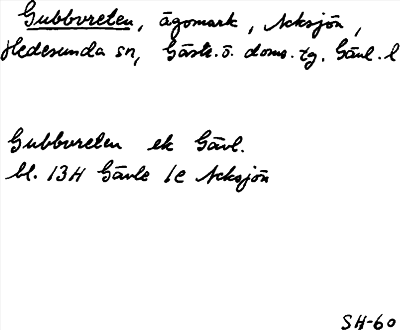 Gubbvreten, ägomark, Acksjön,
Hedesunda sn, Gästr. ö. doms. tg. Gävl. l
Gubbvreten ek Gävl.
bl. 13H Gävle 1c Acksjön
SH-60